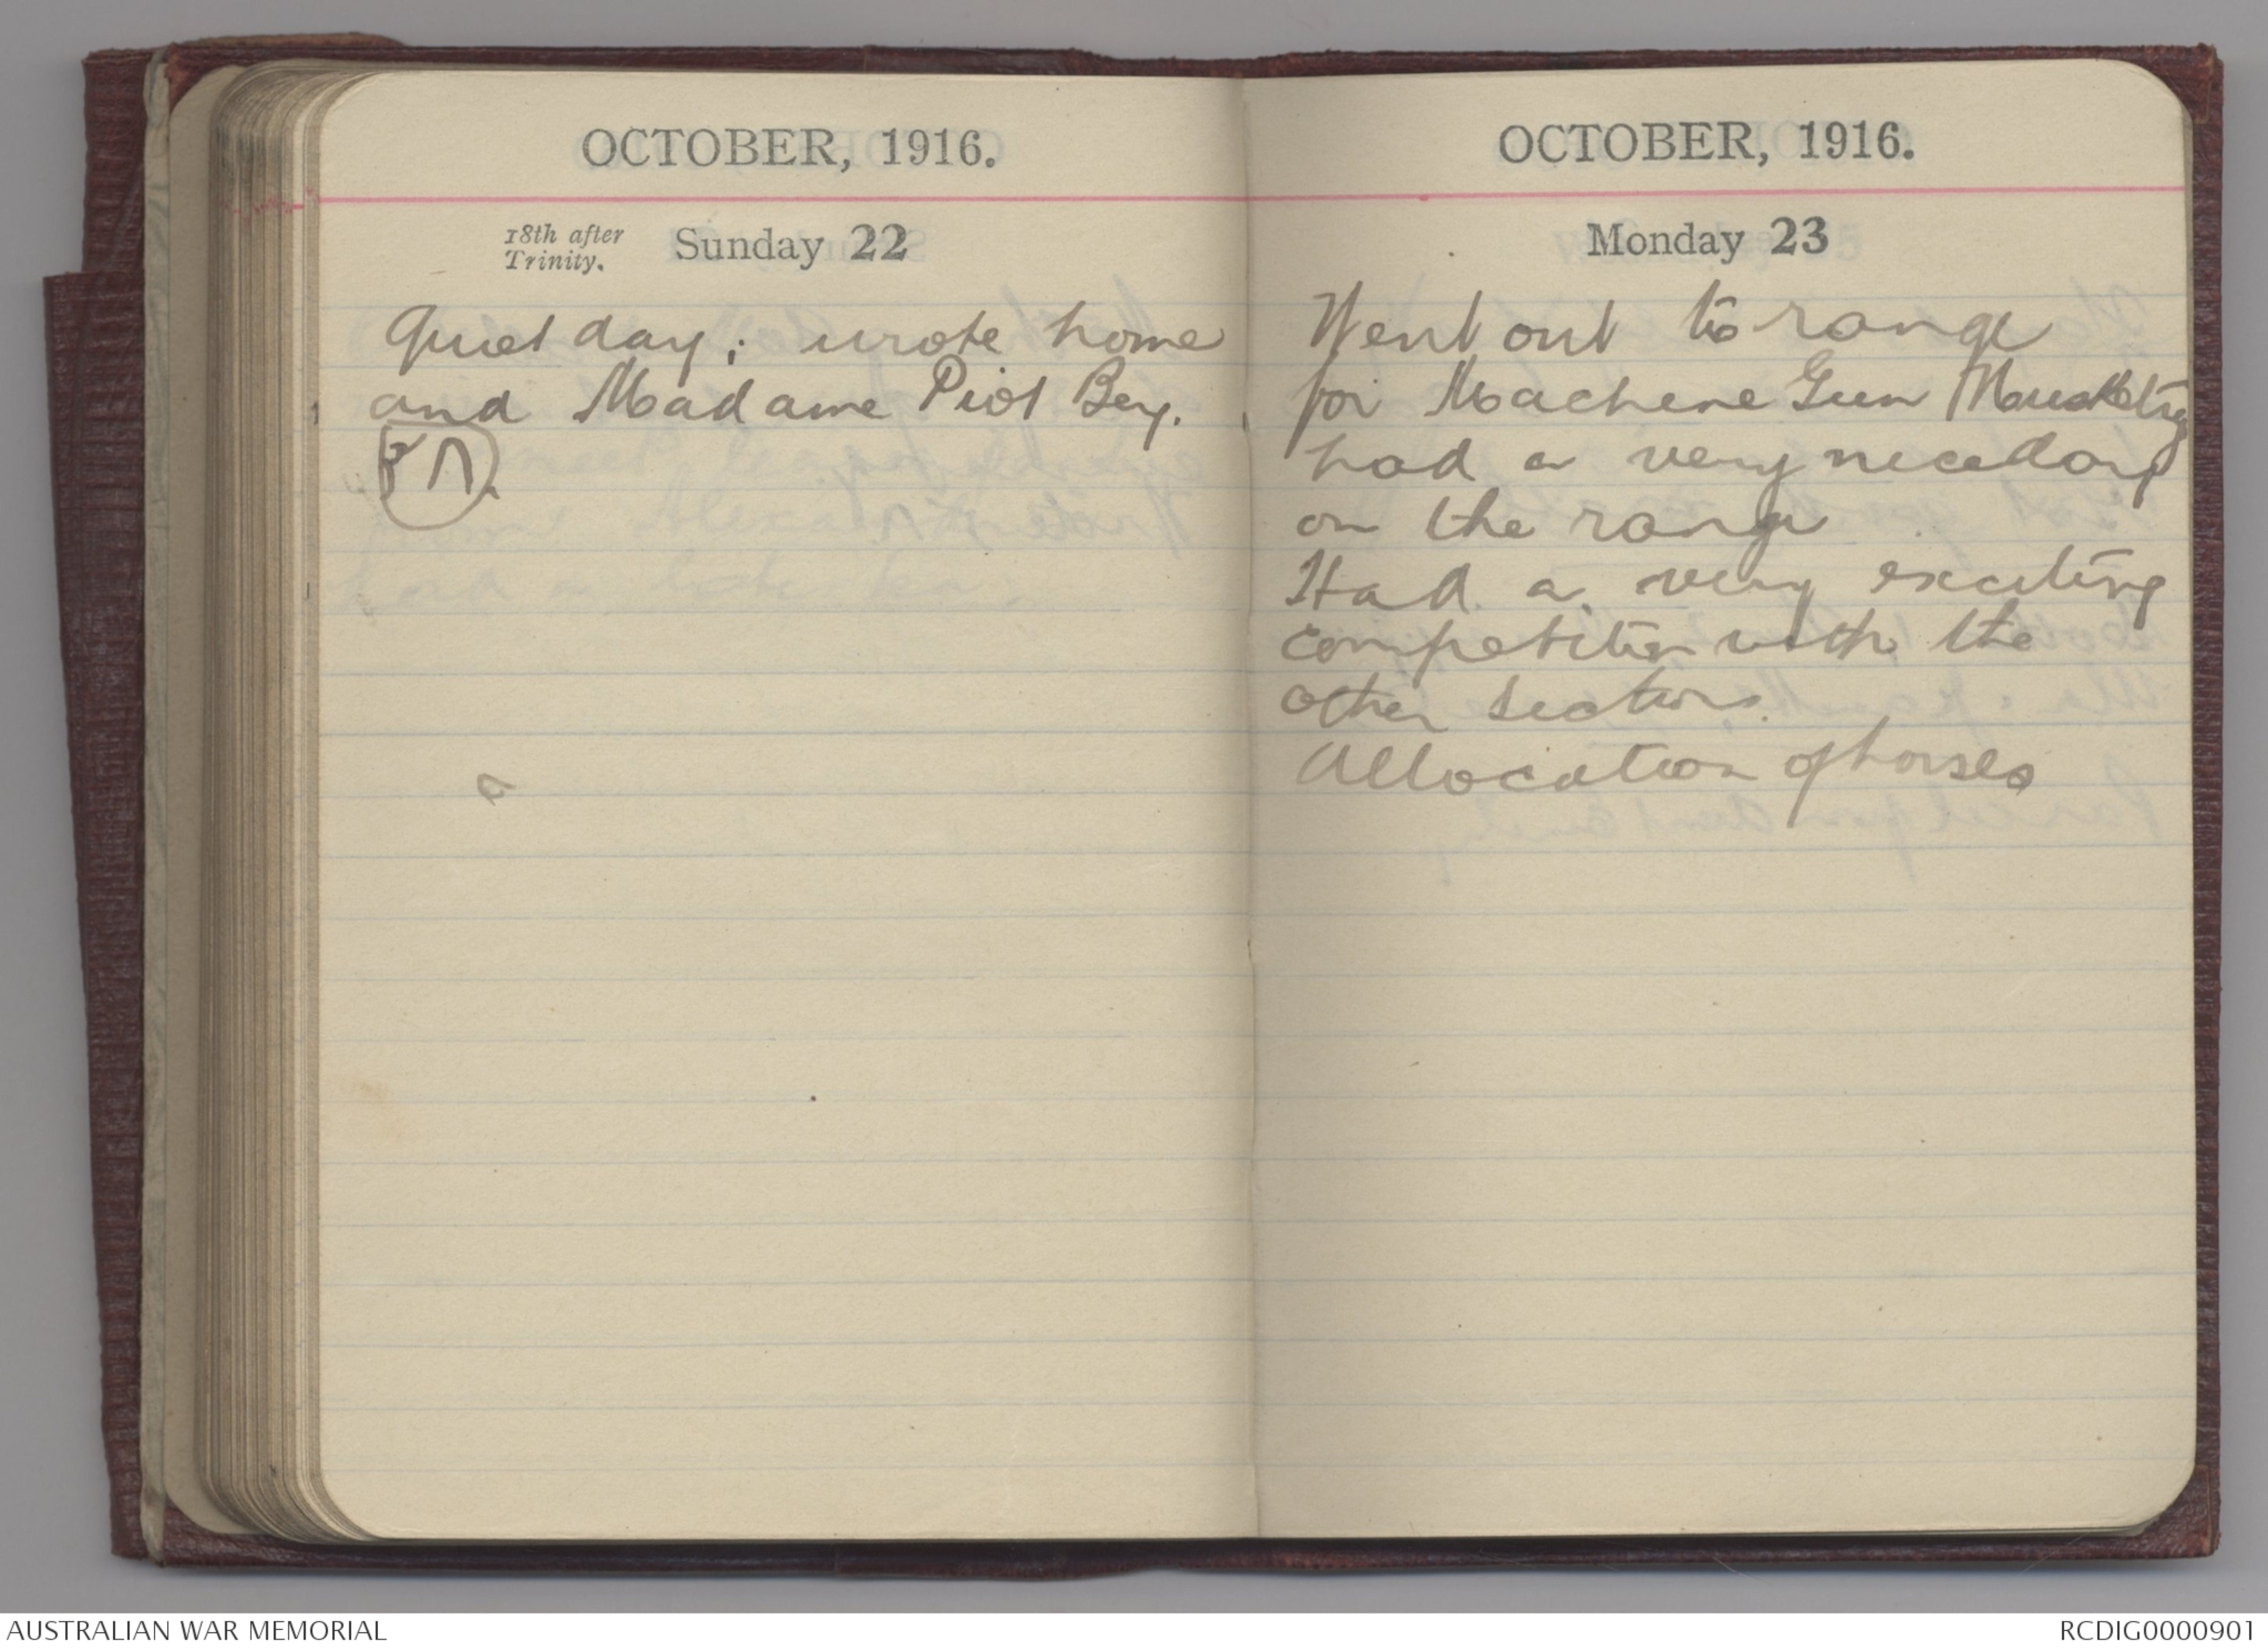 OCTOBER, 1916.
18th after
Trinity.
Sunday 22
Quiet day; wrote home
and Madame Piot Bey.
OCTOBER, 1916.
Monday 23
Went out to range
for Machine Gun Musketry
had a very nice day
on the range
Had a very exciting
competition with the
other sections.
Allocation of horses
AUSTRALIAN WAR MEMORIAL
RCDIG0000901